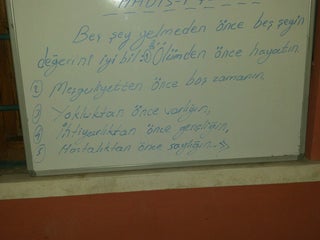 HADİS-İ Ş
Beş şey gelmeden önce beş şeyin
değerini iyi bil: ① Ölümden önce hayatın
② Meşguliyetten önce boş zamanın,
③ Yokluktan önce varlığın,
④ İhtiyarlıktan önce gençliğin,
⑤ Hastalıktan önce sağlığın...